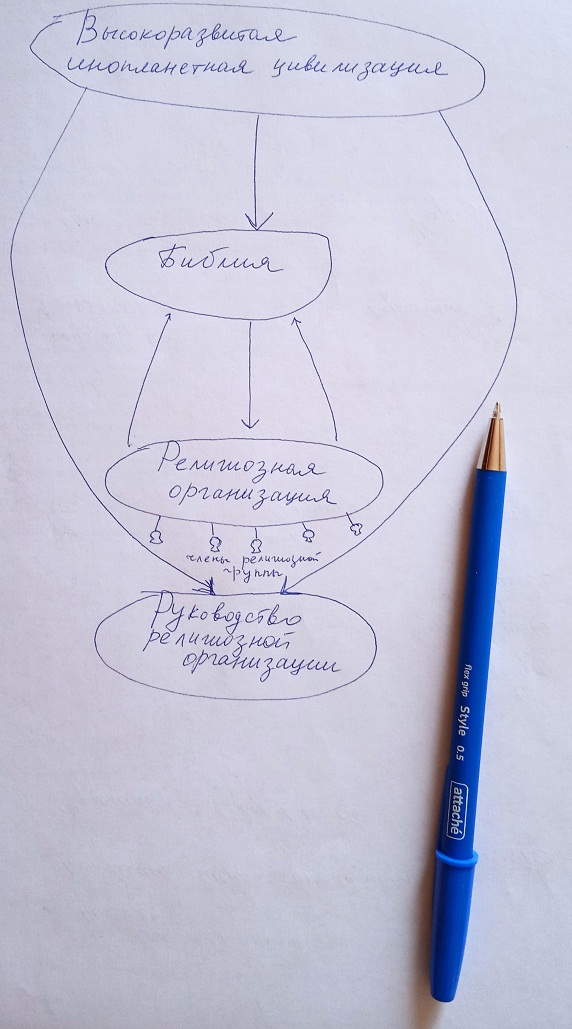 Высокоразвитая
инопланетная цивилизация
Библия
Религиозная
организация
члены религиозной
группы
Руководство
религиозной
организации
flex grip Style 0.5 attaché